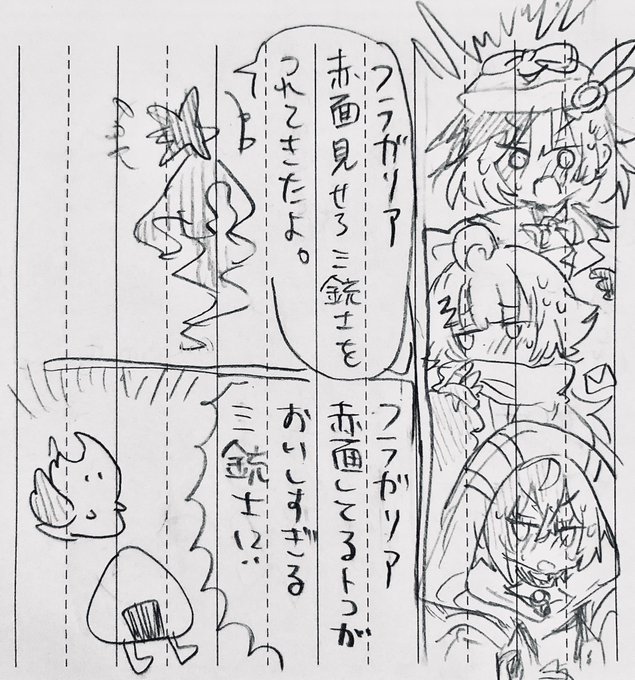 フラガリア
赤面見せろ三銃士を
つれてきたよ。
フラガリア
赤面してるトコが
おいしすぎる
三銃士!?